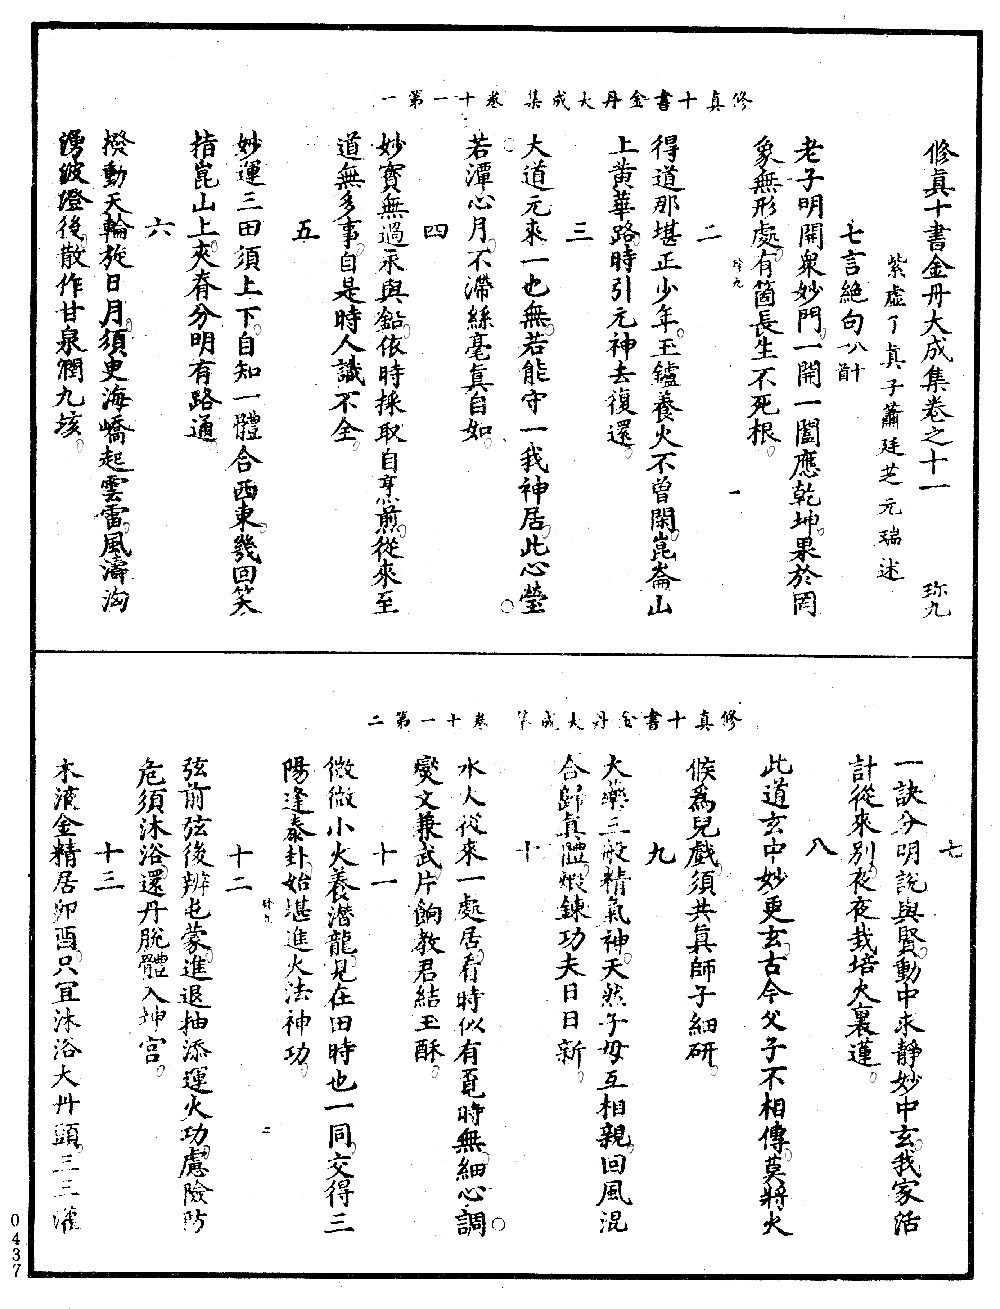 修真十書金丹大成集卷十一第一
修真十書金丹大成集卷之十一 珍九
紫虛了真子蕭廷芝元瑞述
七言絕句八十首
老子明開衆妙門一開一闔應乾坤果於罔
象無形處有箇長生不死根
二
得道那堪正少年玉鑪養火不曾閑崑崙山
上黄華路時引元神去復還
三
大道元來一也無若能守一我神居此心瑩
若潭心月不滯絲毫真自如
四
妙寶無過汞與鉛依時採取自烹煎從來至
道無多事自是時人識不全
五
妙運三田須上下自知一體合西東幾回笑
指崑山上夾脊分明有路通
六
撥動天輪旋日月須更海嶠起雲雷風濤洶
湧波澄後散作甘泉潤九垓
珍九
一
修真十書金丹大成集卷十一第二
七
一訣分明說與賢動中求靜妙中玄我家活
計從來别夜夜栽培火裏蓮
八
此道玄中妙更玄古今父子不相傳莫將火
候爲兒戲須共真師子細研
九
大藥三般精氣神天然子母互相親回風混
合歸真體煅鍊功夫日日新
十
水人從來一處居看時似有覓時無細心調
燮文兼武片餉教君結玉酥
十一
微微小火養潛龍見在田時也一同交得三
陽逢泰卦始堪進火法神功
十二
弦前弦後辨屯蒙進退抽添運火功慮險防
危須沐浴還丹脫體入坤宫
十三
木液金精居卯酉只宜沐浴大丹頭三三灌
珍九
二
0437